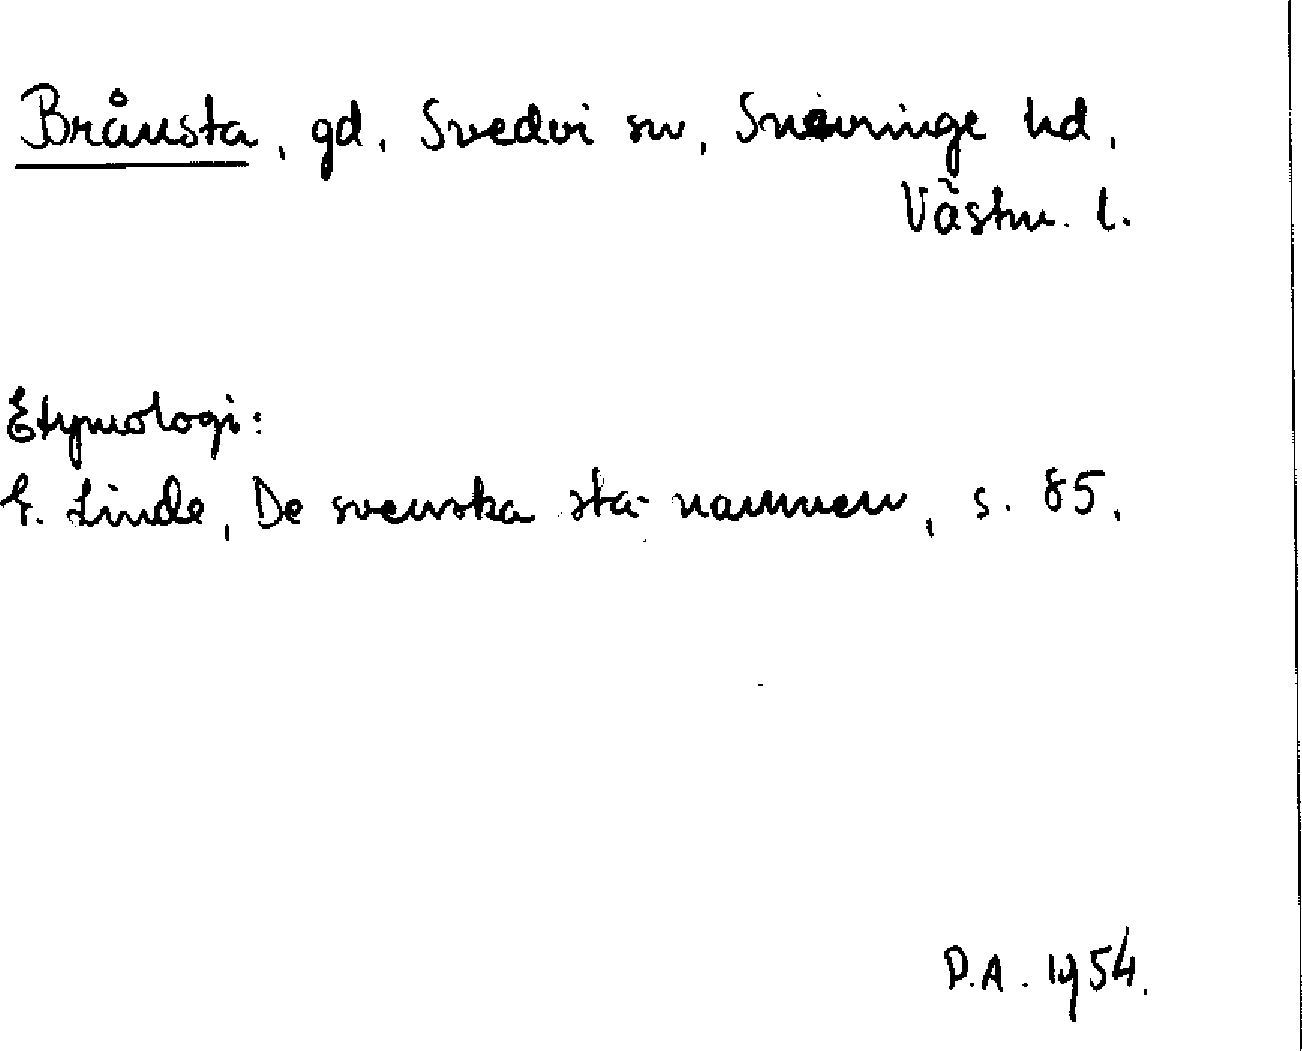 Brånsta, gd, Svedvi sn, Snevringe hd,
Västm. l.
Etymologi:
G. Linde, De svenska sta-namnen, s. 85.
D.A. 1954.